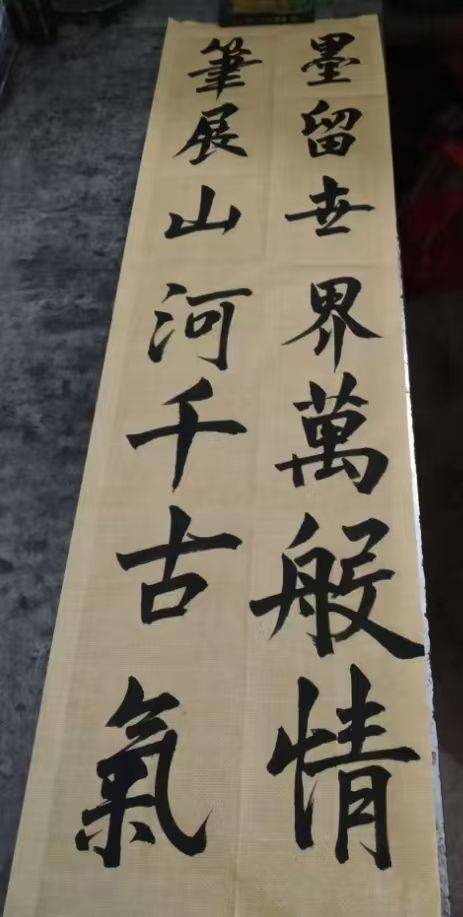 墨留世界萬般情
筆展山河千古氣